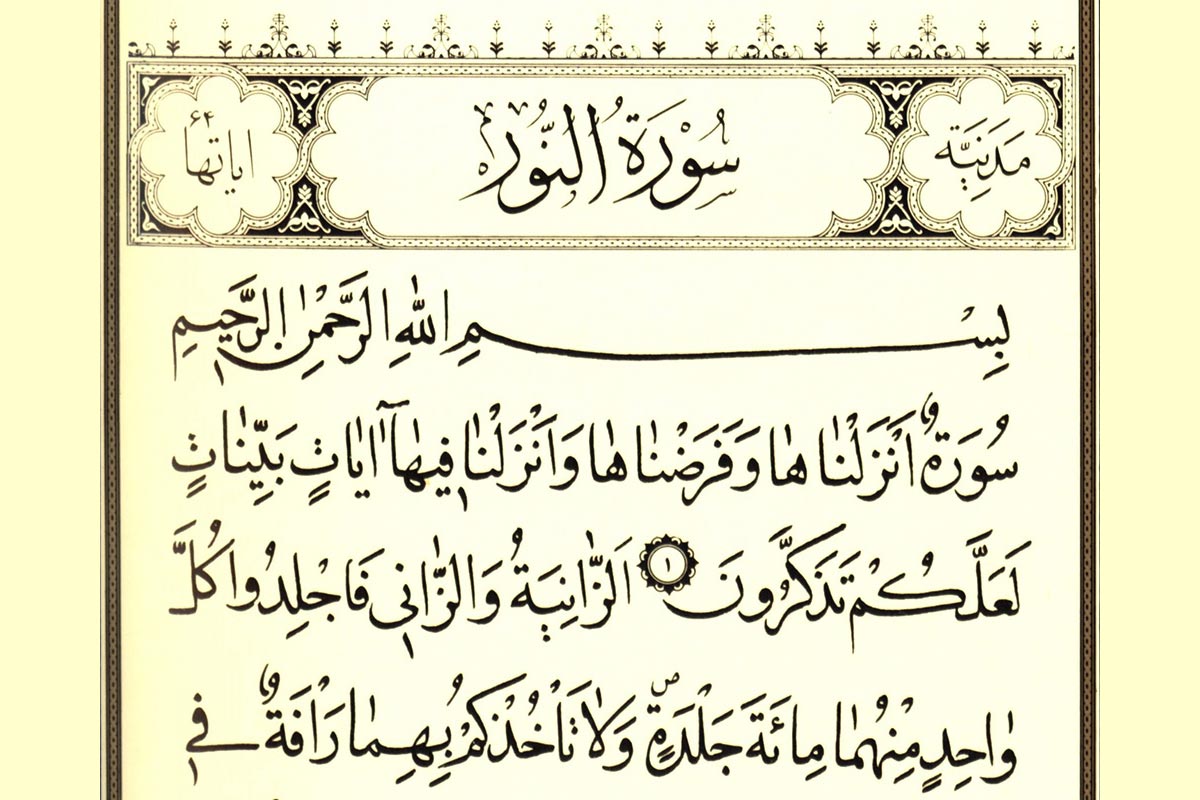 مَدَنِيَّة سُورَةُ النُّورِ اياتها ٦٤
بِسْمِ اللّٰهِ الرَّحْمٰنِ الرَّحِيمِ
سُورَةٌ اَنْزَلْنٰاهٰا وَفَرَضْنٰاهٰا وَاَنْزَلْنٰا فِيهٰآ اٰيٰاتٍ بَيِّنٰاتٍ
لَعَلَّكُمْ تَذَكَّرُونَ ١ اَلزّٰانِيَةُ وَالزّٰانِي فَاجْلِدُوا كُلَّ
وٰاحِدٍ مِنْهُمٰا مِائَةَ جَلْدَةٍ ص وَلٰا تَأْخُذْكُمْ بِهِمٰا رَأْفَةٌ فِي